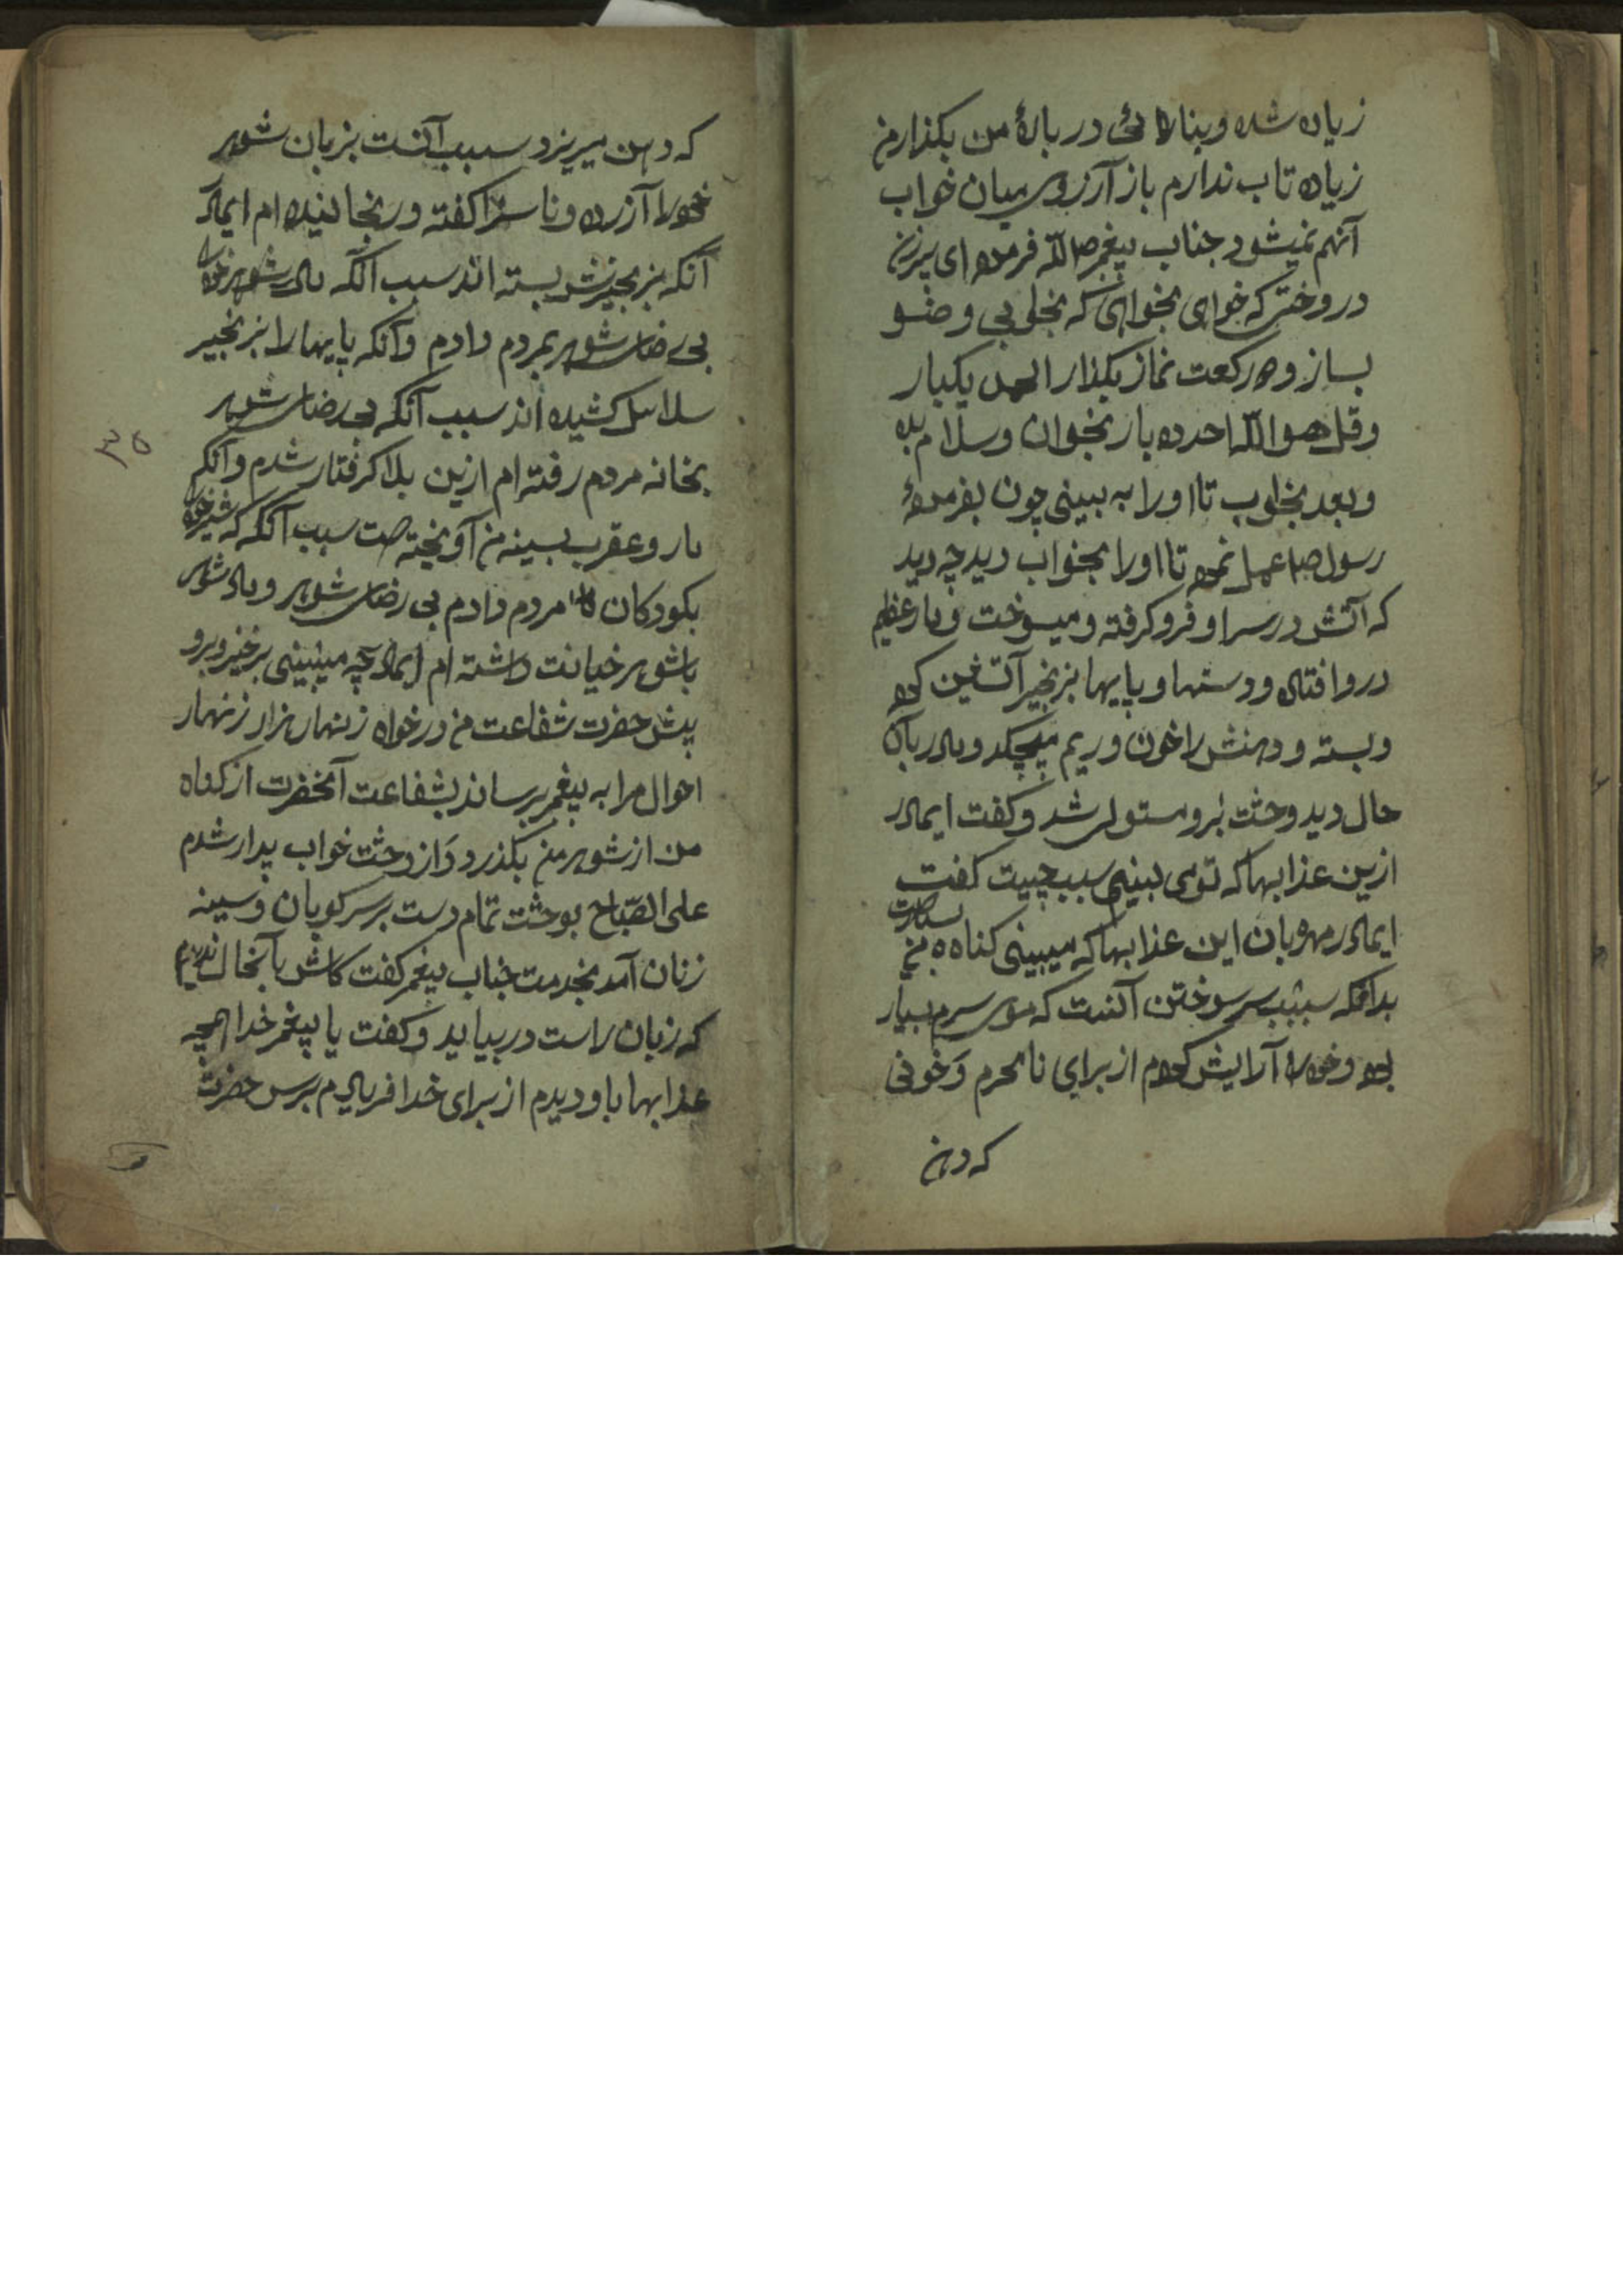 زیاده شده و بنا در بارهٔ من بکذار من
زیاده تاب ندارم باز آرزوی میان خواب
آنهم نمیشود جناب پیغمبر صلالله فرمود ای پیرزن
در وختی که خوای بخوابی که بخابی وضو
بساز و دو رکعت نماز بکذار الحمد یکبار
و قل هو الله احد ده بار بخوان و سلام بده
و بعد بخواب تا اورا به ببینی چون بفرمودهٔ
رسول ص عمل نمود تا اورا بخواب دید چه دید
که آتش در سر او فرو کرفته و میسوخت و مار عظیم
در و افتاده و دستها و پایها بزنجیر آتشین کرده
و بسته و دهنش را خون و ریم میچکد و مادر بآن
حال دید وحشت برو مستولی شد و کفت ایمادر
ازین عذابها که تو می بینی سبب چیست کفت
ایمادر مهربان این عذابها که میبینی کناه من بسیارست
بدانکه سبب سر سوختن آنست که موی سرم بسیار
بود و خود را آرایش کردم از برای نامحرم و خونی
که دهن
که دهن میریزد سبب آنست بزبان شوهر
خود را آزرده و ناسزا کفته و رنجانیده ام ایمادر
آنکه بزنجیرش بسته اند سبب آنکه مال شوهر خود را
بی رضای شوهر بمردم دادم و آنکه پایها را بزنجیر
سلاسل کشیده اند سبب آنکه بی رضای شوهر
بخانه مردم رفته ام ازین بلا کرفتار شدم و آنکه
مار و عقرب بسینه من آویخته است سبب آنکه که شیر خود را
بکودکان مردم دادم بی رضای شوهر و مال شوهر
باشوهر خیانت داشته ام ایمادر چه میبینی برخیز و برو
پیش حضرت شفاعت من درخواه زینهار هزار زنهار
احوال مرا به پیغمبر برساند بشفاعت آنحضرت از کناه
من از شوهر من بکذرد و از وحشت خواب بیدار شدم
علی الصّباح بوحشت تمام دست بر سر کوبان و سینه
زنان آمد بخدمت جناب پیغمبر کفت کاش بآنحال ندیدم
که زبان راست در بیاید و کفت یا پیغمبر خدا همچه
عذابها باو دیدم از برای خدا فریادم برس حضرت
۳۵